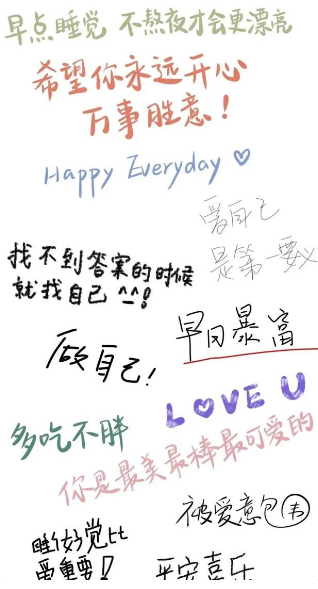 早点睡觉 不熬夜才会更漂亮
希望你永远开心
万事胜意！
Happy Everyday ♡
爱自己
是第一要义
找不到答案的时候
就找自己 ^_^!
做自己！
早日暴富
LOVE U
多吃不胖
你是最美最棒最可爱的
被爱意包围
睡好觉比
重要！
平安喜乐